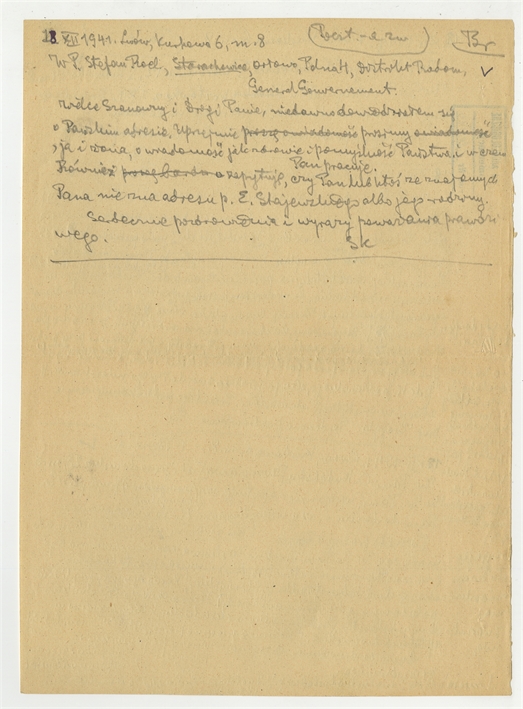 18. XII 1941. Lwów, Kurkowa 6, m. 8
W P. Stefan, Starachowice, Orłowo, Polna 4, Distrikt Radom,
General Gouvernement.
Wielce Szanowny i Drogi Panie, niedawno dowiedziałem się
o Pańskim adresie. Uprzejmie proszę o wiadomość prosimy o wiadomość
, ja i żona, o wiadomość jak zdrowie i pomyślność Państwa i w czem
Pan pracuje.
Również proszę bardzo zapytuję, czy Pan lub ktoś ze znajomych
Pana nie zna adresu p. E. Stajewskiego albo jego rodziny.
Serdeczne pozdrowienia i wyrazy poważania prawdzi
wego. SK